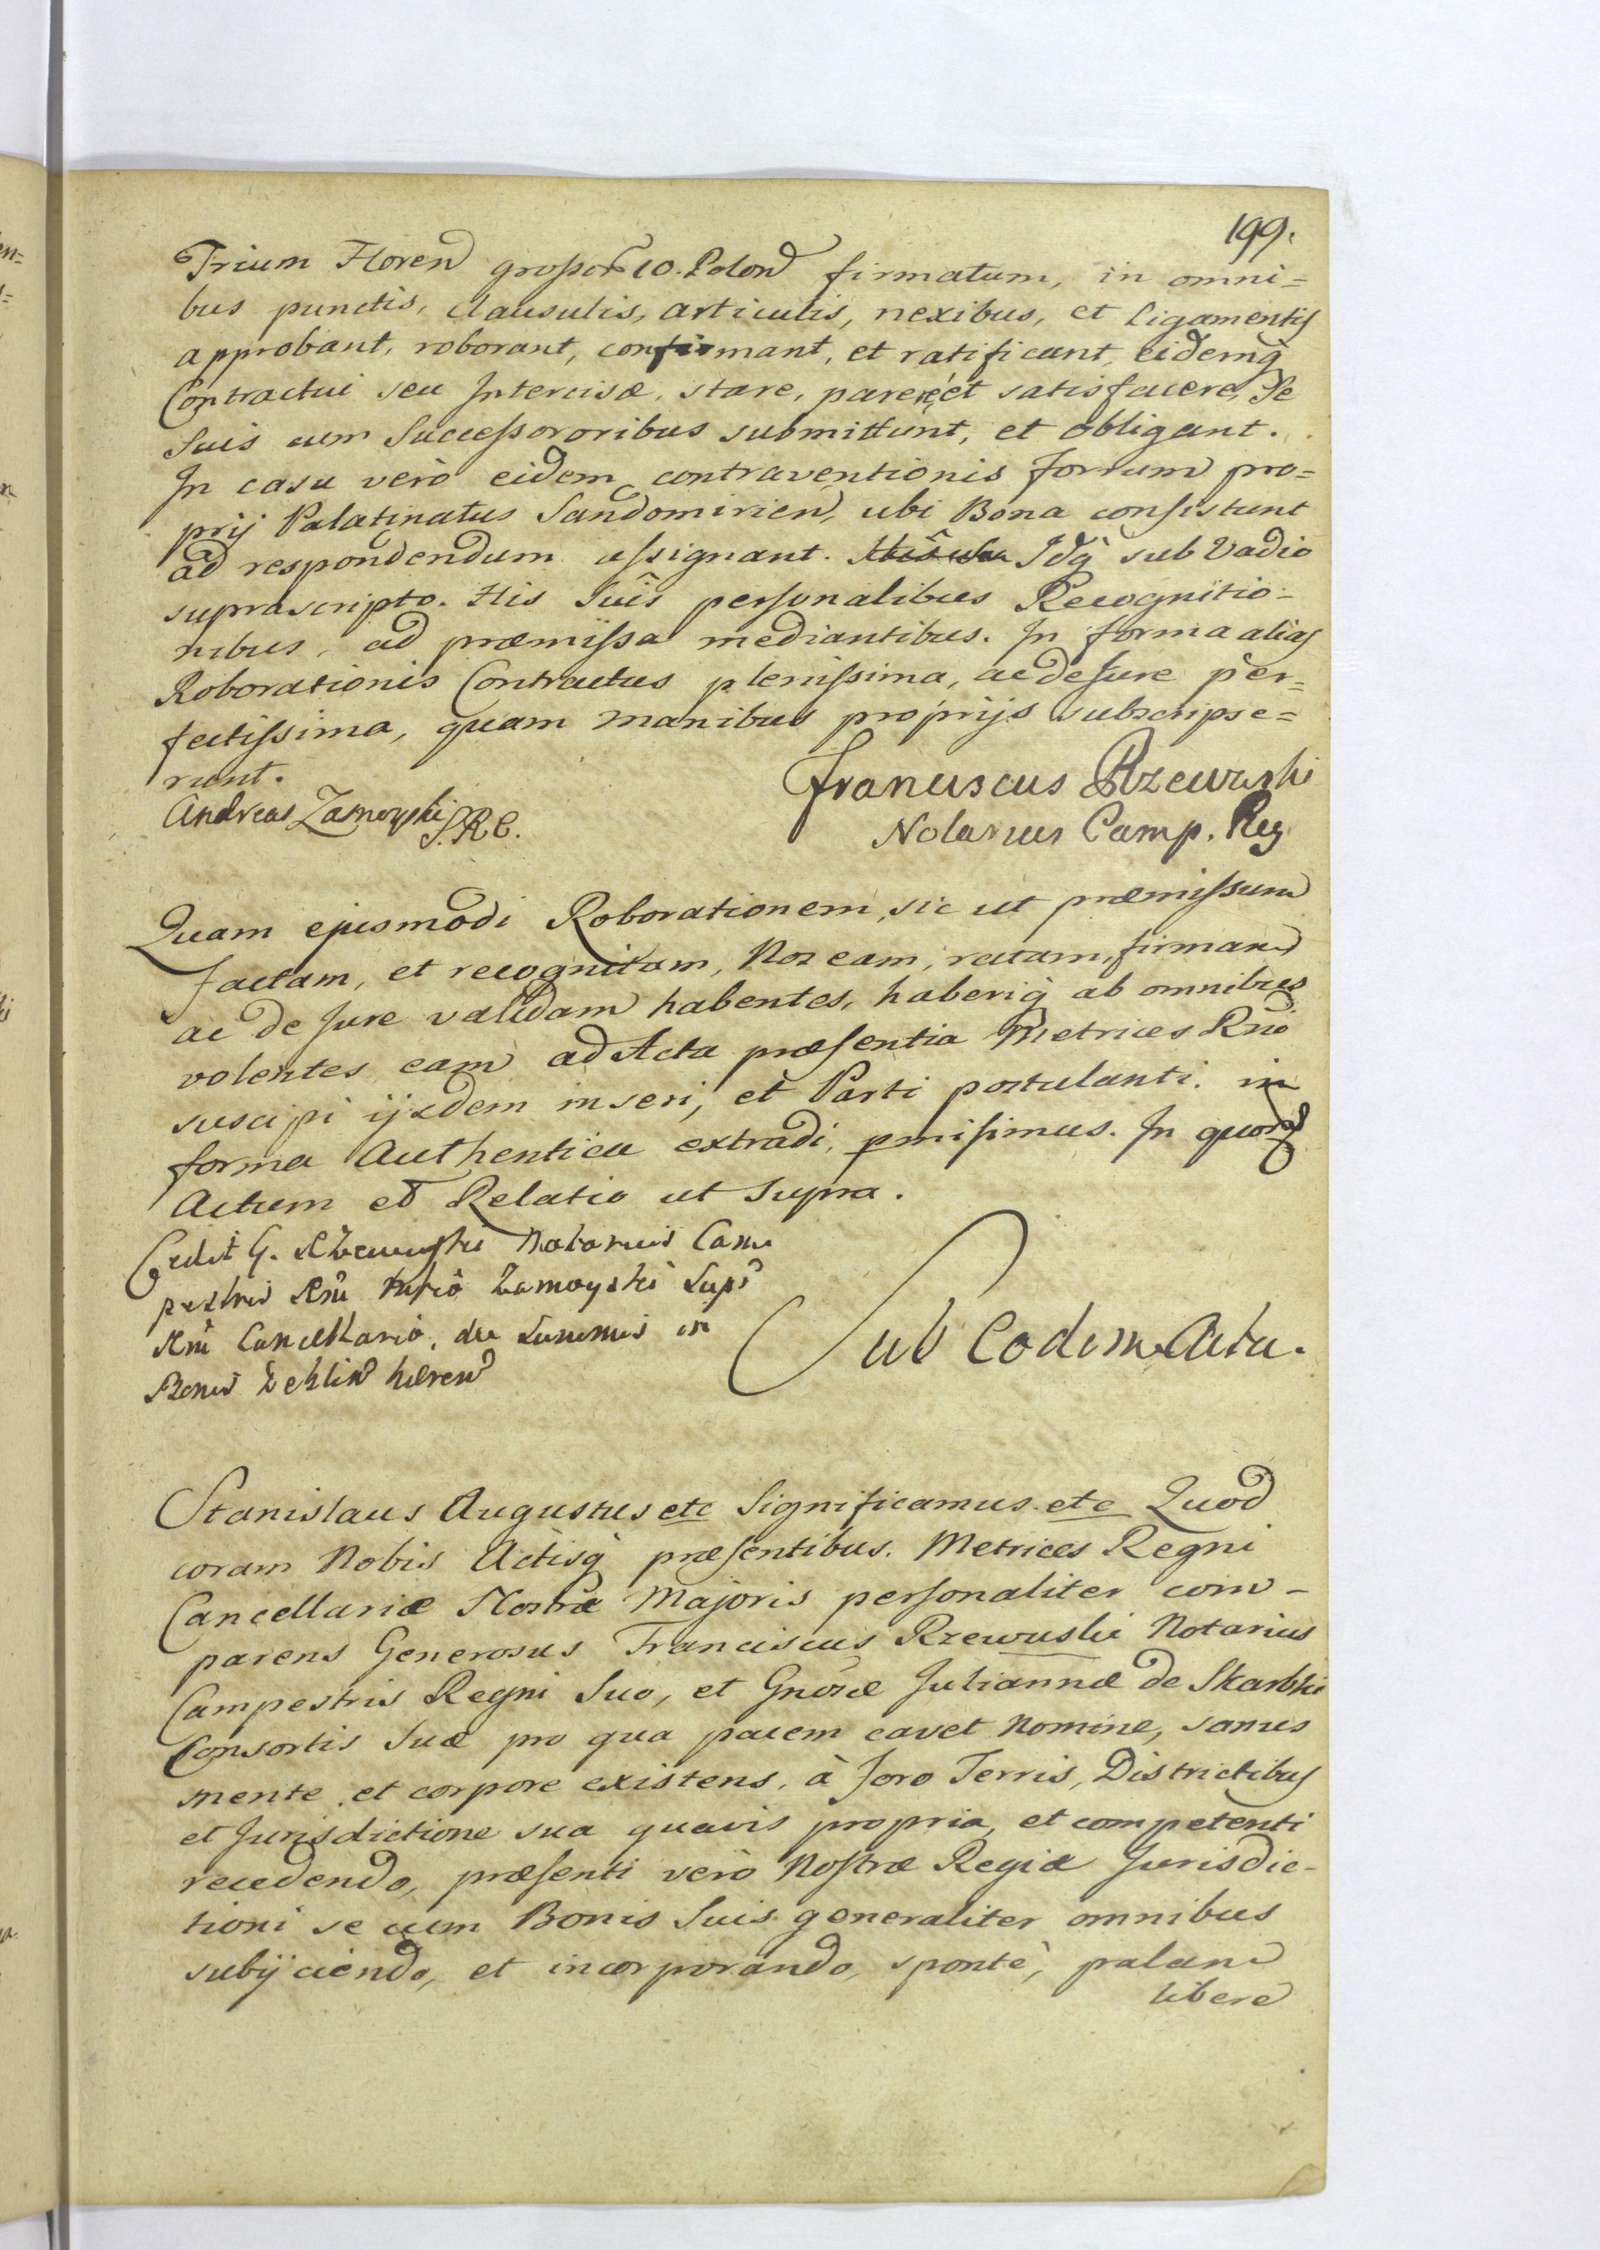 199.
Trium Floren grossor 10. Polon firmatum, in omni=
bus punctis, clausulis, articulis, nexibus, et Ligamentis
approbant, roborant, confirmant, et ratificant, eidemq
Contractui seu Intercisæ, stare, parere, et satisfacere, Se
Suis cum Successororibus submittunt, et obligant.
In casu verò eidem contraventionis forum pro=
prij Palatinatus Sandomirien, ubi Bona consistunt
ad respondendum assignant. Idq sub Vadio
suprascripto. His Suis personalibus Recognitio=
nibus, ad præmissa mediantibus. In forma alias
Roborationis Contractus plenissima, ac de Jure per=
fectissima, quam manibus proprijs subscripse=
runt.
Franciscus Rzewuski
Andreas Zamoyski S.R.C.
Notarius Camp. Reg
Quam ejusmodi Roborationem, sic ut præmissum
factam, et recognitam, Nos eam, ratam, firmam
ac de Jure validam habentes, haberiq ab omnibus
volentes eam ad Acta præsentia Metrices Rni
suscipi ijsdem inseri, et Parti postulanti in
forma Authentica extradi, pmisimus. In quor
Actum et Relatio ut Supra.
Cedit G. Rzewuski Notarius Cam
pestris Rni Zamoyski Sup
Rni Cancellario, de Summis in
Bonis hæren
Sub Eodem Actu.
Stanislaus Augustus etc Significamus etc Quod
coram Nobis Actisq præsentibus Metrices Regni
Cancellariæ Nostræ Majoris personaliter com-
parens Generosus Franciscus Rzewuski Notarius
Campestris Regni Suo, et Gnosæ Juliannæ de Skarbki
Consortis Suæ pro qua pacem cavet Nomine, sanus
mente et corpore existens, à foro Terris, Districtibus
et Jurisdictione sua quavis propria, et competenti
recedendo, præsenti verò Nostræ Regiæ Jurisdic-
tioni se cum Bonis Suis generaliter omnibus
subijciendo, et incorporando, spontè, palam
libere